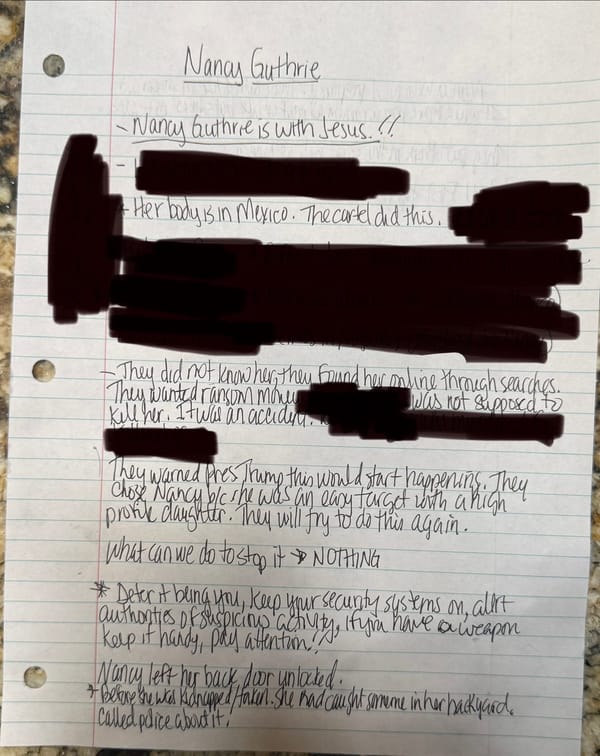 Nancy Guthrie
- Nancy Guthrie is with Jesus. !!
-
* Her body is in Mexico. The cartel did this.
- They did not know her, they found her online through searches.
They wanted ransom money was not supposed to
kill her. It was an accident.
They warned Pres Trump this would start happening. They
chose Nancy b/c she was an easy target with a high
profile daughter. They will try to do this again.
What can we do to stop it → NOTHING
* Deter it being you, keep your security systems on, alert
authorities of suspicious activity, if you have a weapon
keep it handy, pay attention!!
Nancy left her back door unlocked.
* before she was kidnapped/taken. She had caught someone in her backyard.
called police about it.